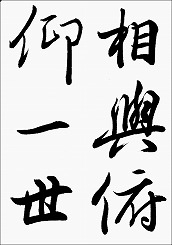 相與俯
仰一世